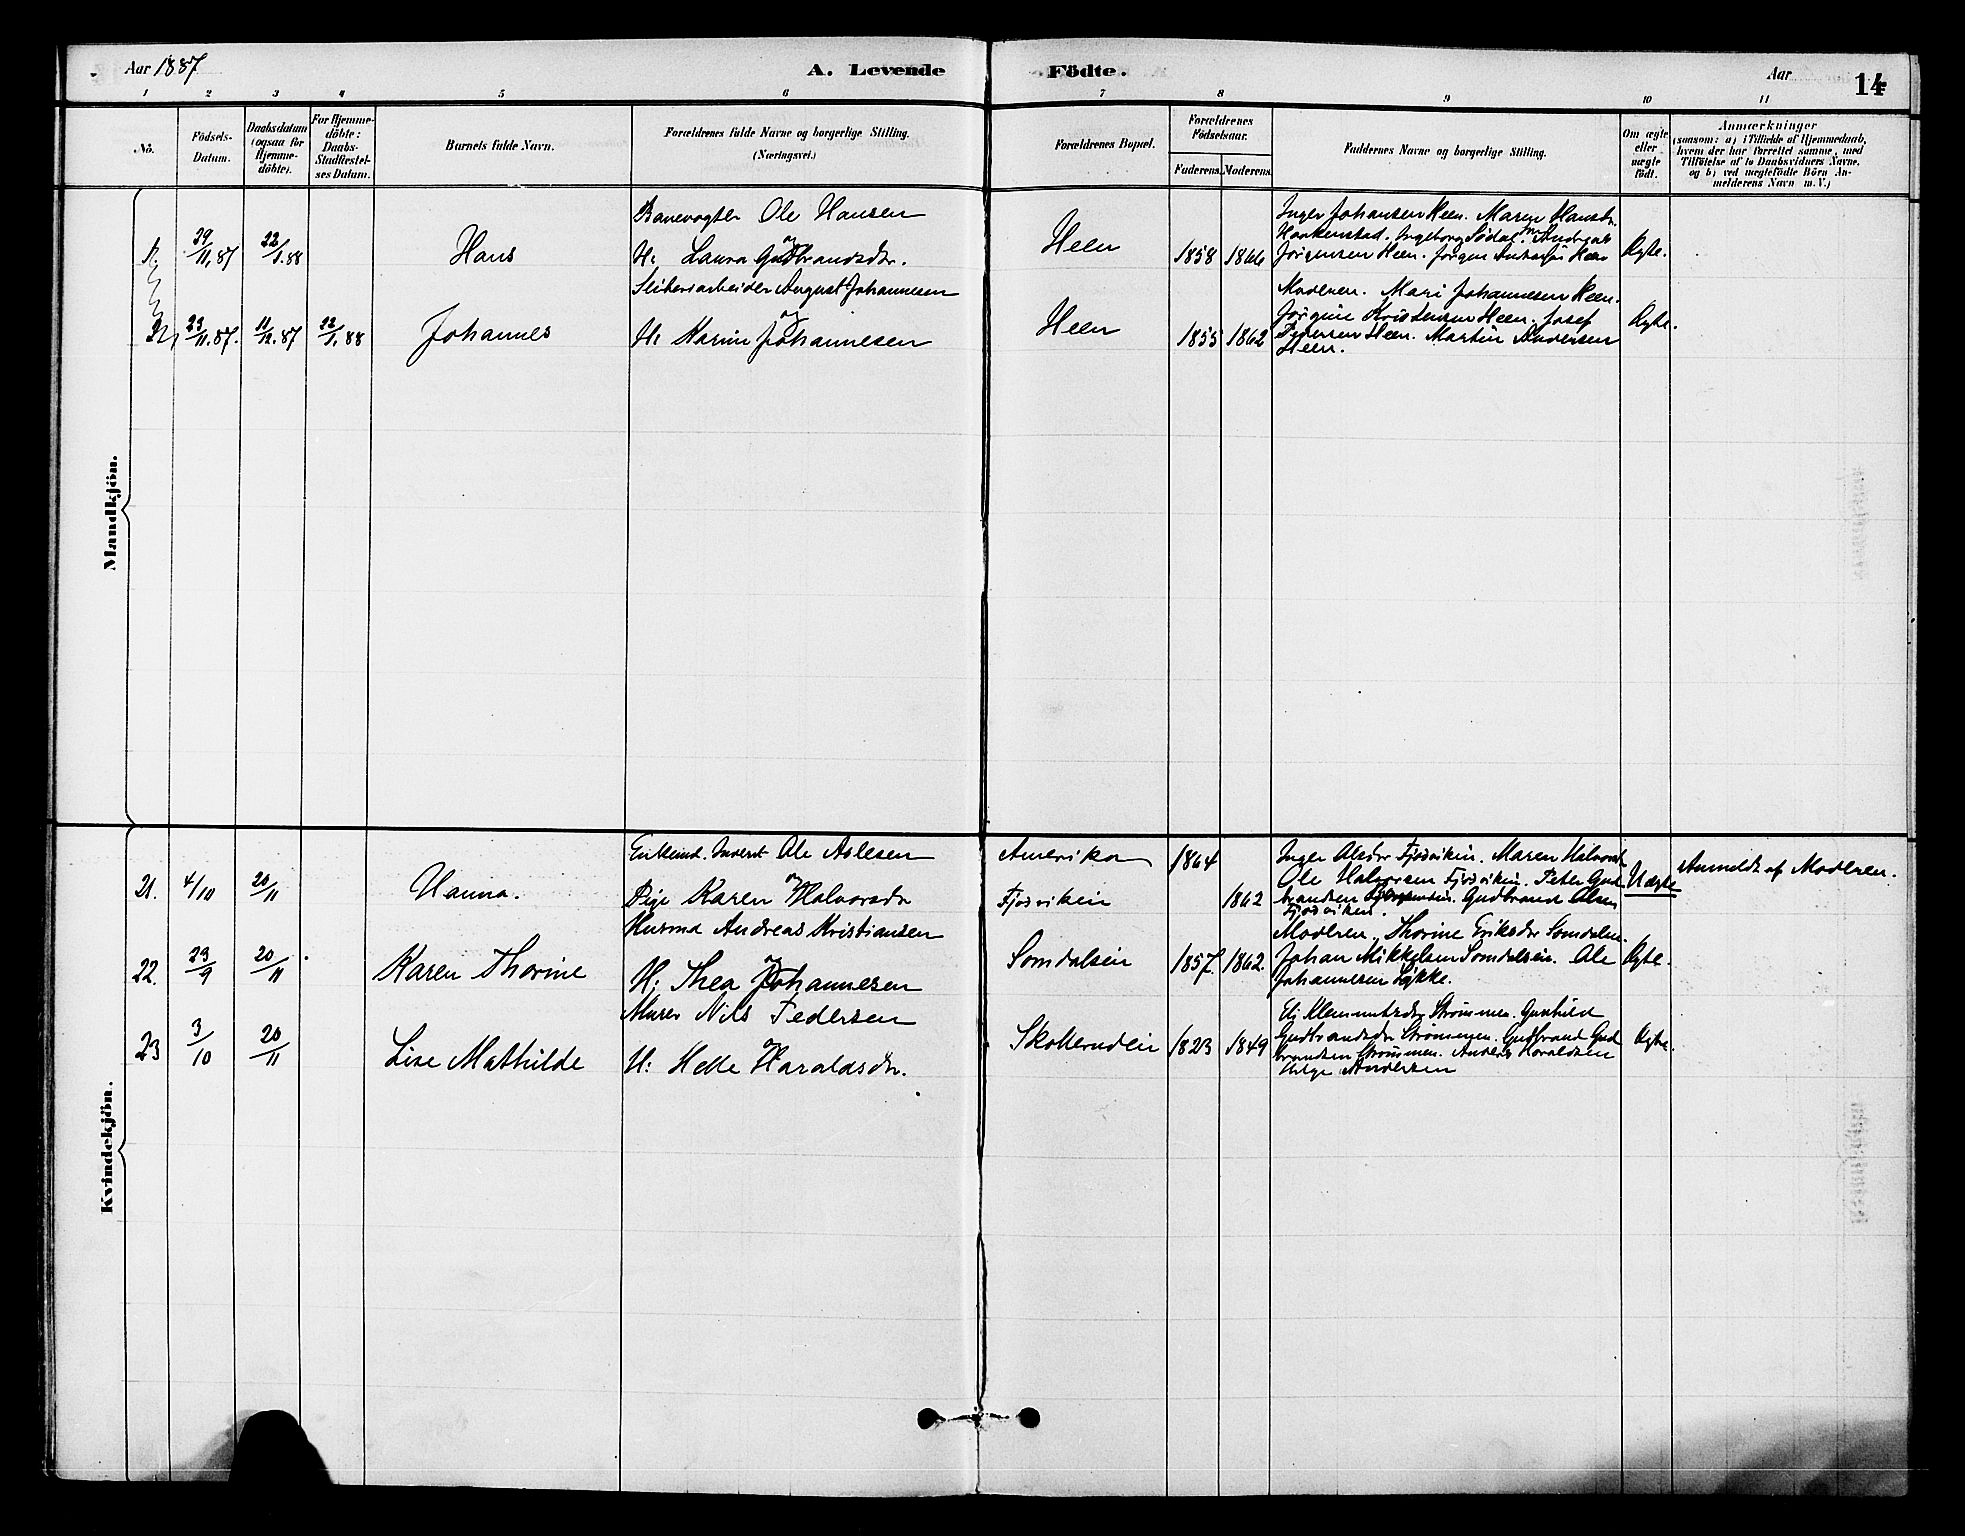 Aar 1887
A. Levende Födte.
Aar
14
1 2 3 4 5 6 7 8 9 10 11
No.
Födsels-Datum.
Daabsdatum (ogsaa for Hjemmedöbte).
For Hjemmedöbte: Daabs-Stadfæstelses Datum.
Barnets fulde Navn.
Forældrenes fulde Navne og borgerlige Stilling.
(Næringsvei.)
Forældrenes Bopæl.
Forældrenes Födselsaar.
Faderens. Moderens.
Faddernes Navne og borgerlige Stilling.
Om ægte eller uægte födt.
Anmærkninger
(saasom: a) i Tilfælde af Hjemmedaab, hvem der har forrettet samme, med Tilföielse af to Daabsvidners Navne, og b) ved uægtefödte Börn Anmelderens Navn m. V.)
Mandkjön.
29/11.87 22/1.88 Hans
Banevogter Ole Hansen
og
H: Laura Gudbrandsdr.
Heen 1858 1866
Inger Johansen Heen. Maren Hansdr.
Haakenstad. Ingeborg Södal. Andreas
Jørgensen Heen. Jørgen Heen
Ægte.
23/11.87. 11/12.87 22/1.88 Johannes
Sliberiarbeider August Johannesen
og
H: Karine Johannesen
Heen 1855 1862
Moderen. Mari Johannesen Heen.
Jørgine Kristensen Heen. Josef
Pedersen Heen. Martin Andersen
Heen.
Ægte.
Kvindekjön.
21. 4/10 20/11 Hanna.
Ole Aslesen
og
Pige Karen Halvorsdr
Amerika 1864
Fjosviken 1862
Inger Olsdr Fjosviken. Maren Halvorsdr
Ole Halvorsen Fjosviken. Peter Gud-
brandsen Gudbrand Olsen
Fjosviken.
Uægte
Anmeldt af Moderen.
22. 23/9 20/11 Karen Thorine
Husmd Andreas Kristiansen
og
H: Thea Johannesen
Somdalseie 1857. 1862.
Moderen. Thorine Eriksdr Somdalen.
Johan Mikkelsen Somdalseie. Ole
Johannesen Løkke.
Ægte.
23 3/10 20/11 Lise Mathilde
Murer Nils Pedersen
og
H: Helle Haraldsdr.
Skollerudeie 1823 1849
Eli Klemmetsdr Strømmen. Gunhild
Gudbrandsdr Strømmen. Gudbrand Gud-
brandsen Strømmen. Anders Haraldsen
Helge Andersen
Ægte.